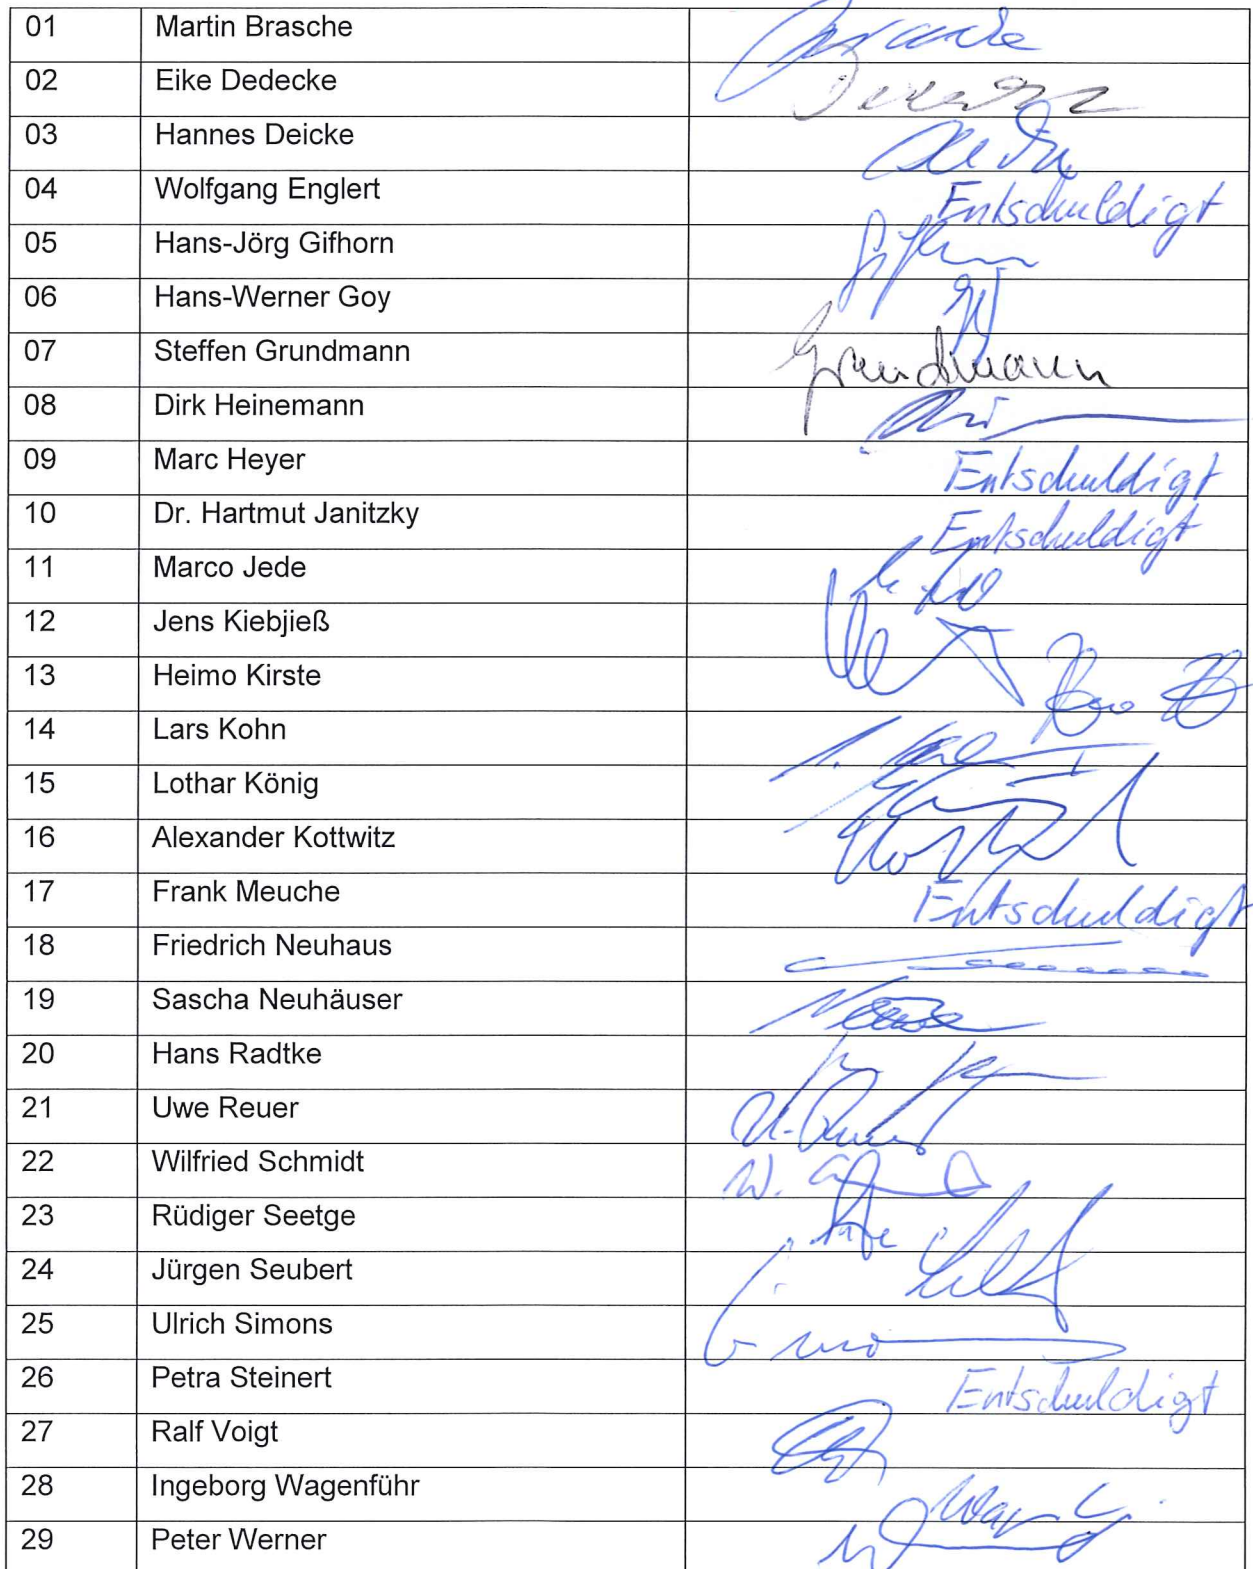 01 Martin Brasche
02 Eike Dedecke
03 Hannes Deicke
04 Wolfgang Englert Entschuldigt
05 Hans-Jörg Gifhorn
06 Hans-Werner Goy
07 Steffen Grundmann Grundmann
08 Dirk Heinemann
09 Marc Heyer Entschuldigt
10 Dr. Hartmut Janitzky Entschuldigt
11 Marco Jede
12 Jens Kiebjieß
13 Heimo Kirste
14 Lars Kohn
15 Lothar König
16 Alexander Kottwitz
17 Frank Meuche Entschuldigt
18 Friedrich Neuhaus
19 Sascha Neuhäuser
20 Hans Radtke
21 Uwe Reuer
22 Wilfried Schmidt
23 Rüdiger Seetge
24 Jürgen Seubert
25 Ulrich Simons
26 Petra Steinert Entschuldigt
27 Ralf Voigt
28 Ingeborg Wagenführ
29 Peter Werner